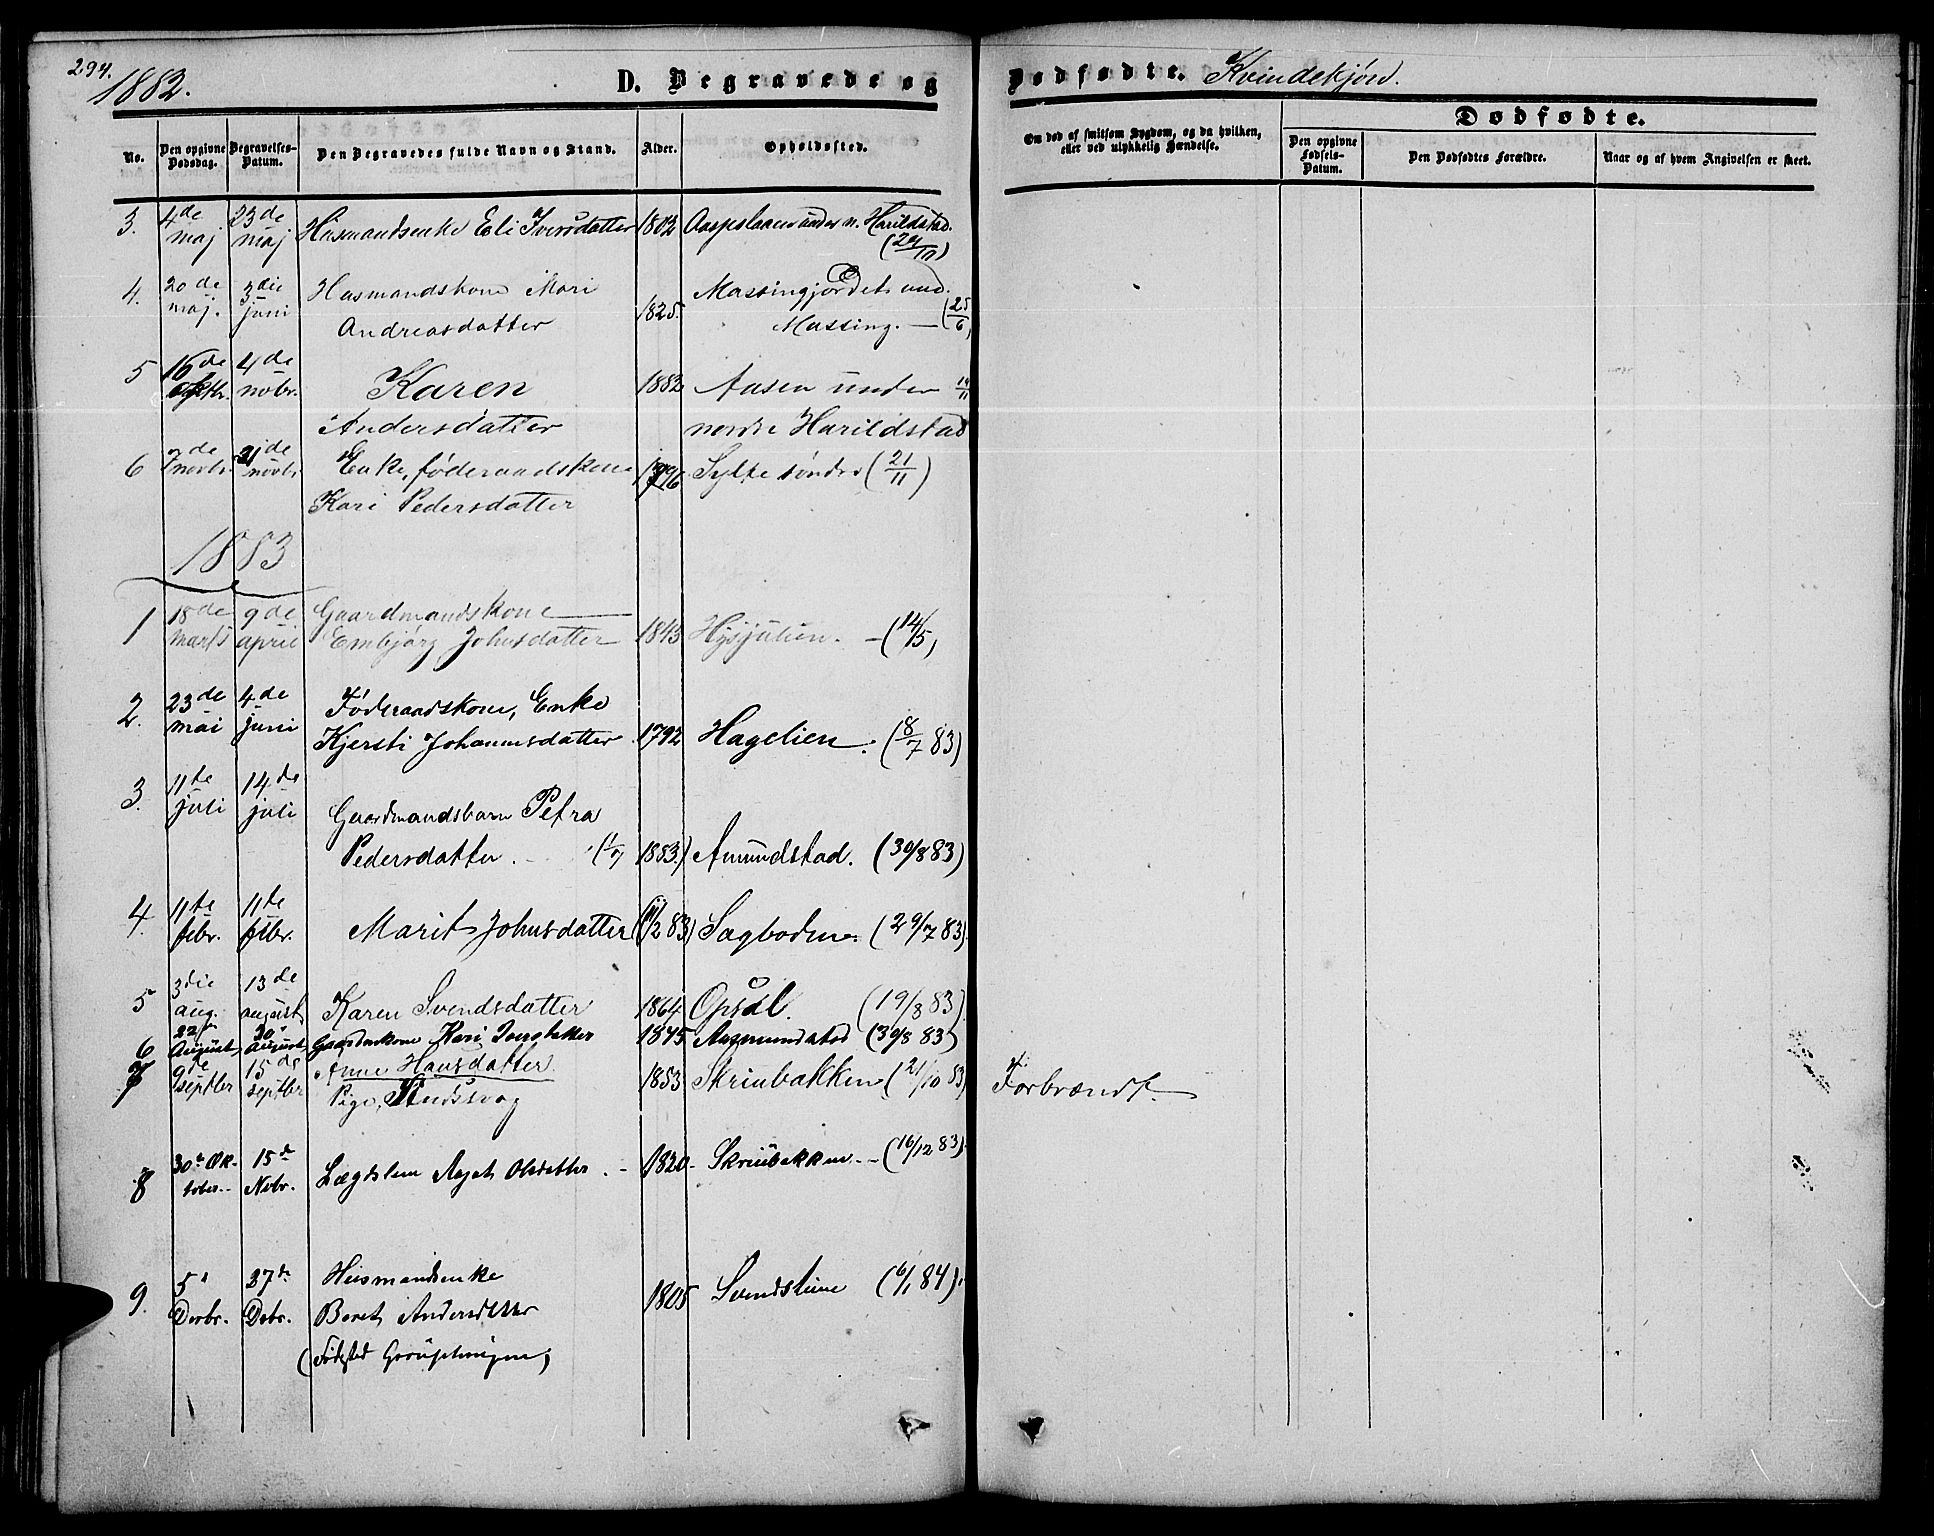 294.
1882.
D. Begravede og Dødfødte. Kvindekjøn.
No.
Den opgivne Dødsdag.
Begravelses-Datum.
Den Begravedes fulde Navn og Stand.
Alder.
Opholdssted.
Om død af smitsom Sygdom, og da hvilken,
eller ved ulykkelig Hændelse.
Dødfødte.
Den opgivne Fødsels-Datum.
Den Dødfødtes Forældre.
Naar og af hvem Angivelsen er skeet.
3. 4de maj 23de maj Husmandsenke Eli Iversdatter 1802 under n. Harildstad.
4. 20de maj. 3die juni Husmandskone Mari
Andreasdatter 1825. Massingjordet und.
Massing. — (25/6)
5 16de oktbr. 4de nobr. Karen 1882 Aasen under 19/11
Andersdatter nordre Harildstad
6 7de novbr 21de novbr Enke, føderaadskone 1796 Sylte søndre (21/11)
Kari Pedersdatter
1883
1 18de marts 9de april Gaardmandskone
Embjørg Johnsdatter 1843 (14/5)
2. 23de mai 4de juni Føderaadskone, Enke
Kjersti Johannesdatter 1792 Hagelien. (8/7 83)
3. 11te juli 14de juli Gaardmandsbarn Petra
Pedersdatter. (1/7 1883.) Amundstad. (30/8 83)
4. 11te febr. 11te febr. Marit Johnsdatter (11/2 83) Sagbodene. (29/7 83)
5 3die aug. 13de august Karen Svendsdatter 1864 Opsal. (19/8 83)
6 22de August 30te august Kari Iversdatter 1845 Aasmundstad (30/8 83)
7 9de septbr 15de septbr Anne Hansdatter 1853 Skriubakken (21/10 83) Forbrændt.
Pige, Sindssvag
8 30te Oktober 15de Nvbr. Lægdslem Olsdatter. - 1820 - Skriubakken - (16/12 83)
9. 5te Decbr. 27de Dcbr. Husmandsenke
Beret Andersdatter 1805 Svendsluen (6/1 84).
(Fødested